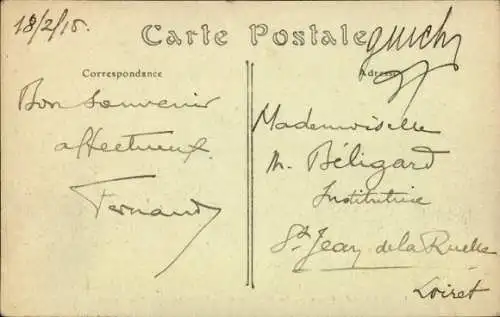 18/2/16.
Carte Postale
Correspondance
Adresse
Bon souvenir
affectueux
Fernand
Mademoiselle
M. Béligard
Institutrice
St Jean de la Ruelle
Loiret